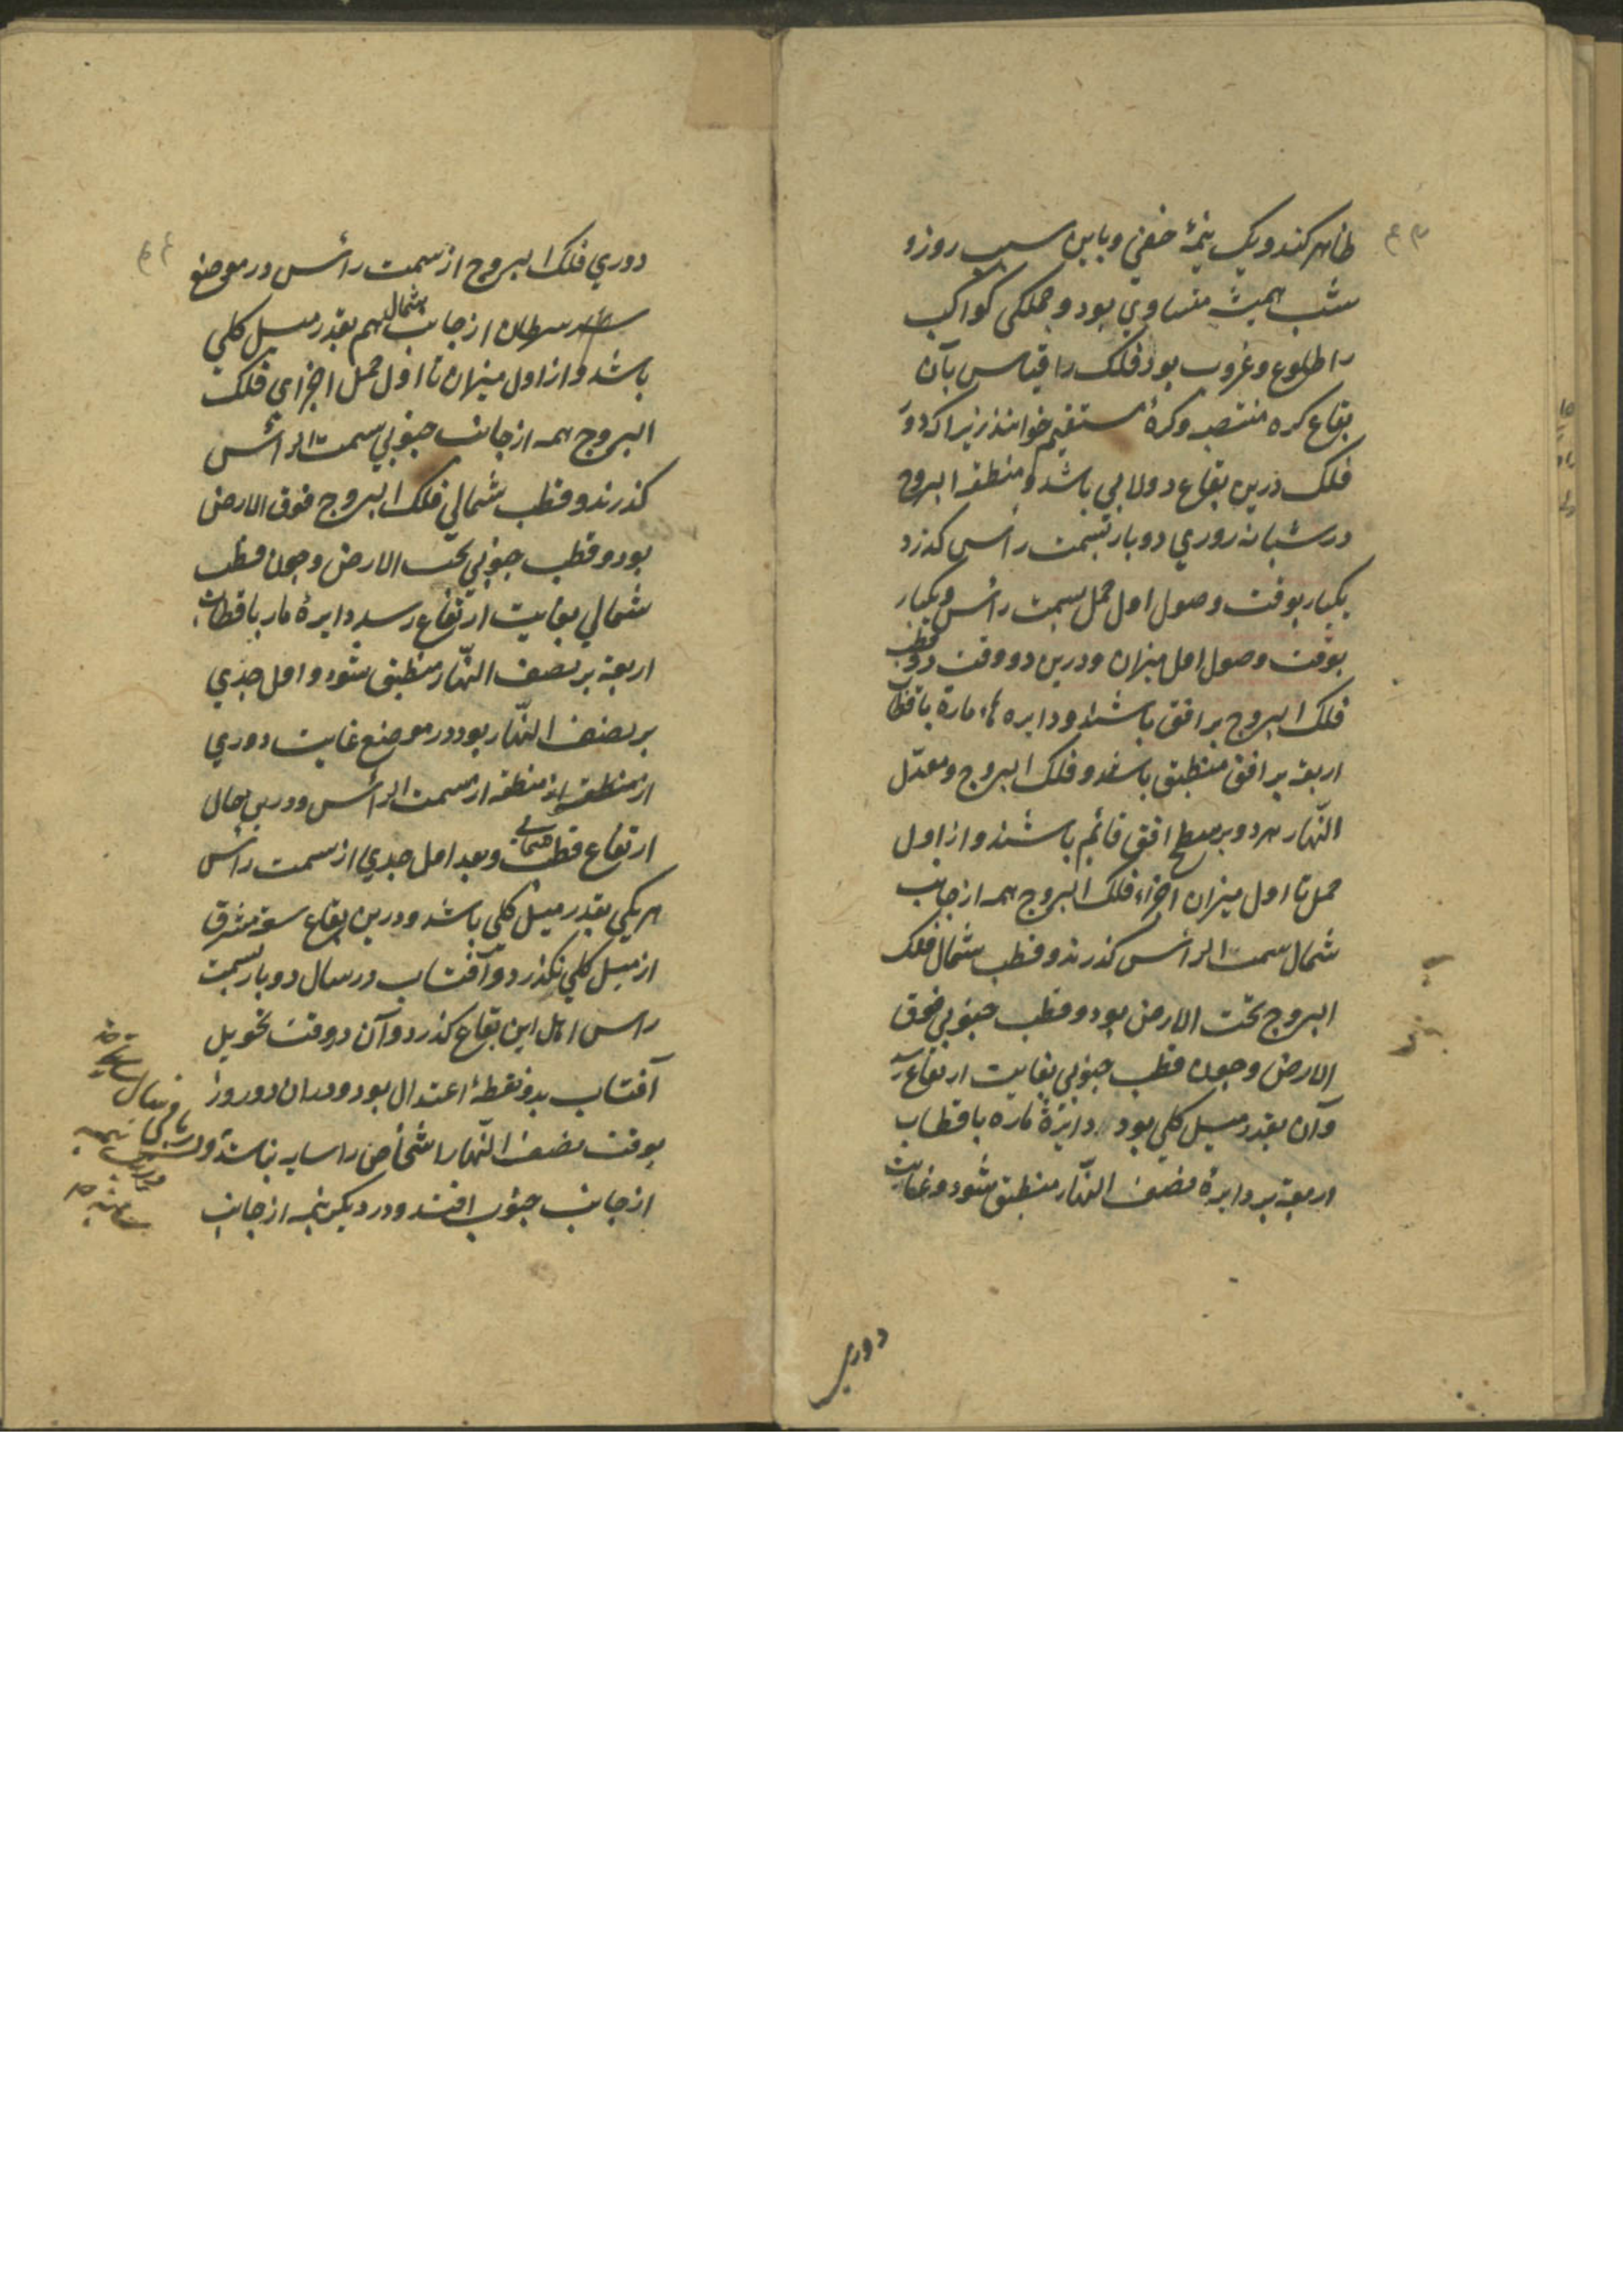 ظاهر کند و یک نیمهٔ خفی و باین سبب روز و
شب همیشه متساوی بود و جملکی کواکب
را طلوع و غروب بود فلک را قیاس بآن
بقاع کره منتصبه و کرهٔ مستقیم خوانند زیرا که دور
فلک درین بقاع دولابی باشد و منطقه البروج
در شبانه روزی دو بار بسمت رأس کذرد
یکبار بوقت وصول اول حمل بسمت رأس و یکبار
بوقت وصول اول میزان و درین دو وقت دو قطب
فلک البروج بر افق باشند و دایره ماره باقطاب
اربعه بر افق منطبق باشد و فلک البروج و معدّل
النّهار هر دو بر سطح افق قائم باشند و از اول
حمل تا اول میزان اجزاء فلک البروج همه از جانب
شمال سمت الرأس کذرند و قطب شمال فلک
البروج تحت الارض بود و قطب جنوبی فوق
الارض و چون قطب جنوبی بغایت ارتفاع رسد
و آن بقدر میل کلی بود دایرهٔ ماره باقطاب
اربعه بر دایرهٔ نصف النّهار منطبق شود و غایت
دوری
دوری فلک البروج از سمت رأس در موضع
سرطان از جانب شمال هم بقدر میل کلی
باشد و از اول میزان تا اول حمل اجزای فلک
البروج همه از جانب جنوبی سمت الرأس
کذرند و قطب شمالی فلک البروج فوق الارض
بود و قطب جنوبی تحت الارض و چون قطب
شمالی بغایت ارتفاع رسد دایرهٔ مار باقطاب
اربعه بر نصف النّهار منطبق شود و اول جدی
بر نصف النّهار بود در موضع غایت دوری
از منطقه از سمت الرأس و درین حال
ارتفاع قطب شمالی و بعد اول جدی از سمت رأس
هر یکی بقدر میل کلی باشد و درین بقاع سعة مشرق
از میل کلی نکذرد و آفتاب در سال دو بار بسمت
راس اهل این بقاع کذرد و آن دو وقت تحویل
آفتاب بدو نقطهٔ اعتدال بود و دران دو روز
بوقت نصف النّهار اشخاص را سایه نباشد و در باقی سال
از جانب جنوب افتد و در دیکر نیمه از جانب